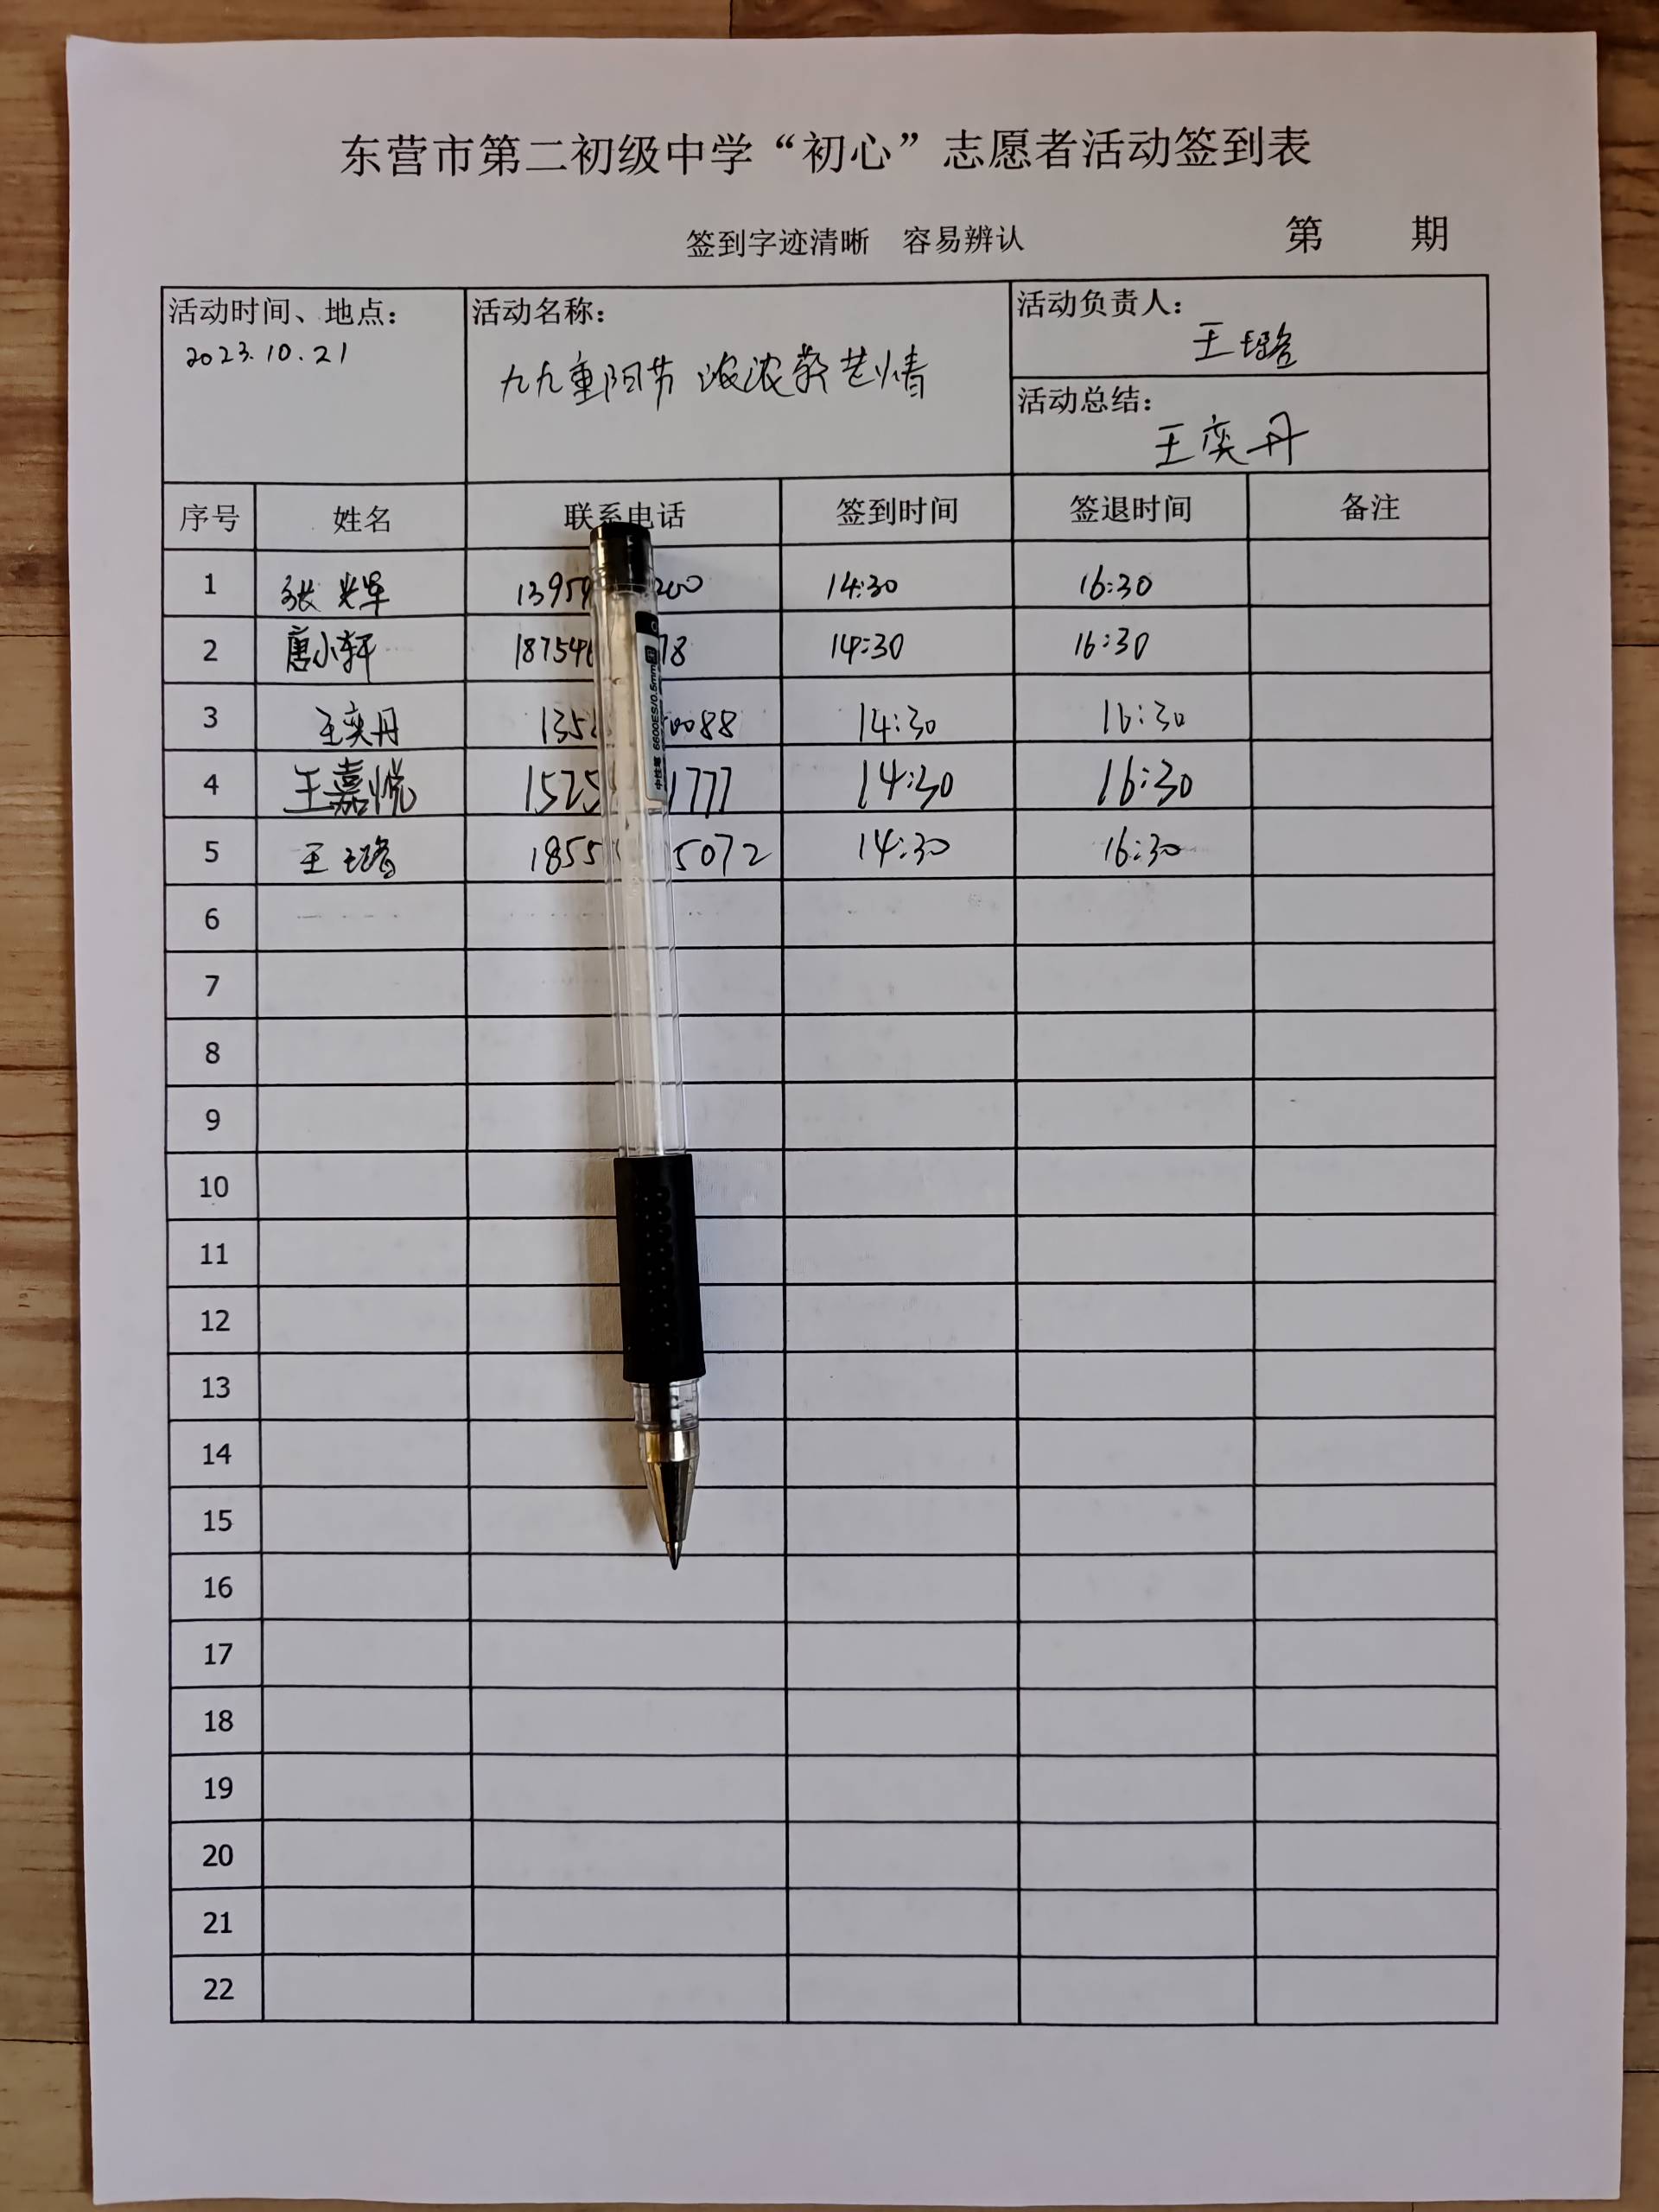 东营市第二初级中学“初心”志愿者活动签到表
签到字迹清晰 容易辨认 第 期
活动时间、地点： 活动名称： 活动负责人：
2023.10.21 九九重阳节 浓浓敬老情 王璐
活动总结：
王奕丹
序号 姓名 联系电话 签到时间 签退时间 备注
1 张 1395 200 14:30 16:30
2 唐小轩 18754 78 14:30 16:30
3 王奕丹 135 0088 14:30 16:30
4 王嘉悦 1525 1777 14:30 16:30
5 王璐 1855 5072 14:30 16:30
6
7
8
9
10
11
12
13
14
15
16
17
18
19
20
21
22
中性笔 6600ES/0.5mm